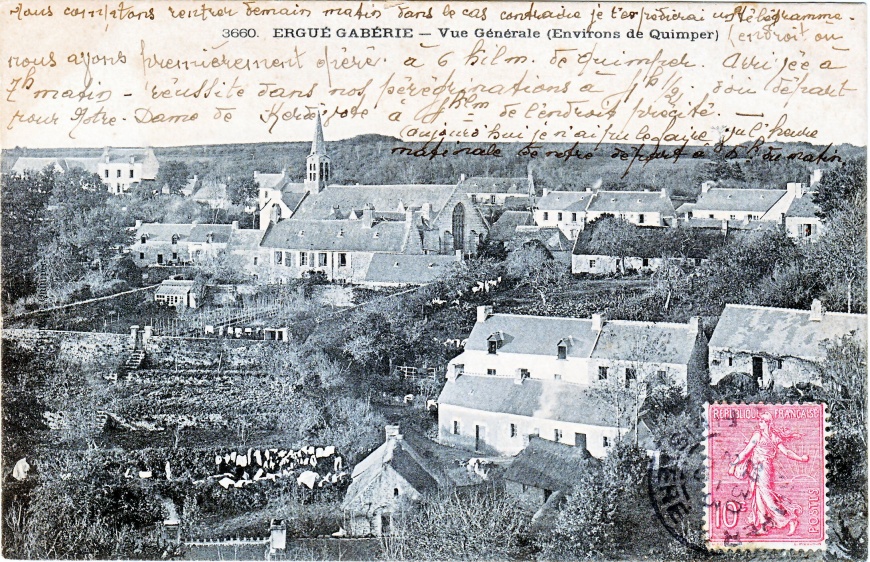 Nous comptons rentrer demain matin dans le cas contraire je t'expédierai un télégramme.
3660. ERGUÉ GABÉRIE — Vue Générale (Environs de Quimper)
(endroit où
nous avons premièrement opéré à 6 kilm. de Quimper. Arrivée à
7h matin - réussite dans nos pérégrinations à 1/2. départ
pour Notre-Dame de Kerdévote à kilm de l'endroit précité. —
(aujourd'hui je n'ai pu le faire l'heure
matinale de notre départ à du matin
RÉPUBLIQUE FRANÇAISE
10
POSTES